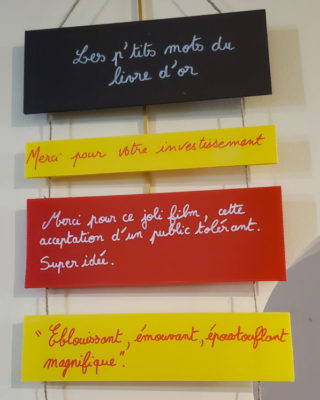 Les p'tits mots du
livre d'or
Merci pour votre investissement
Merci pour ce joli film, cette
acceptation d'un public tolérant.
Super idée.
"Eblouissant, émouvant, époustouflant
magnifique".